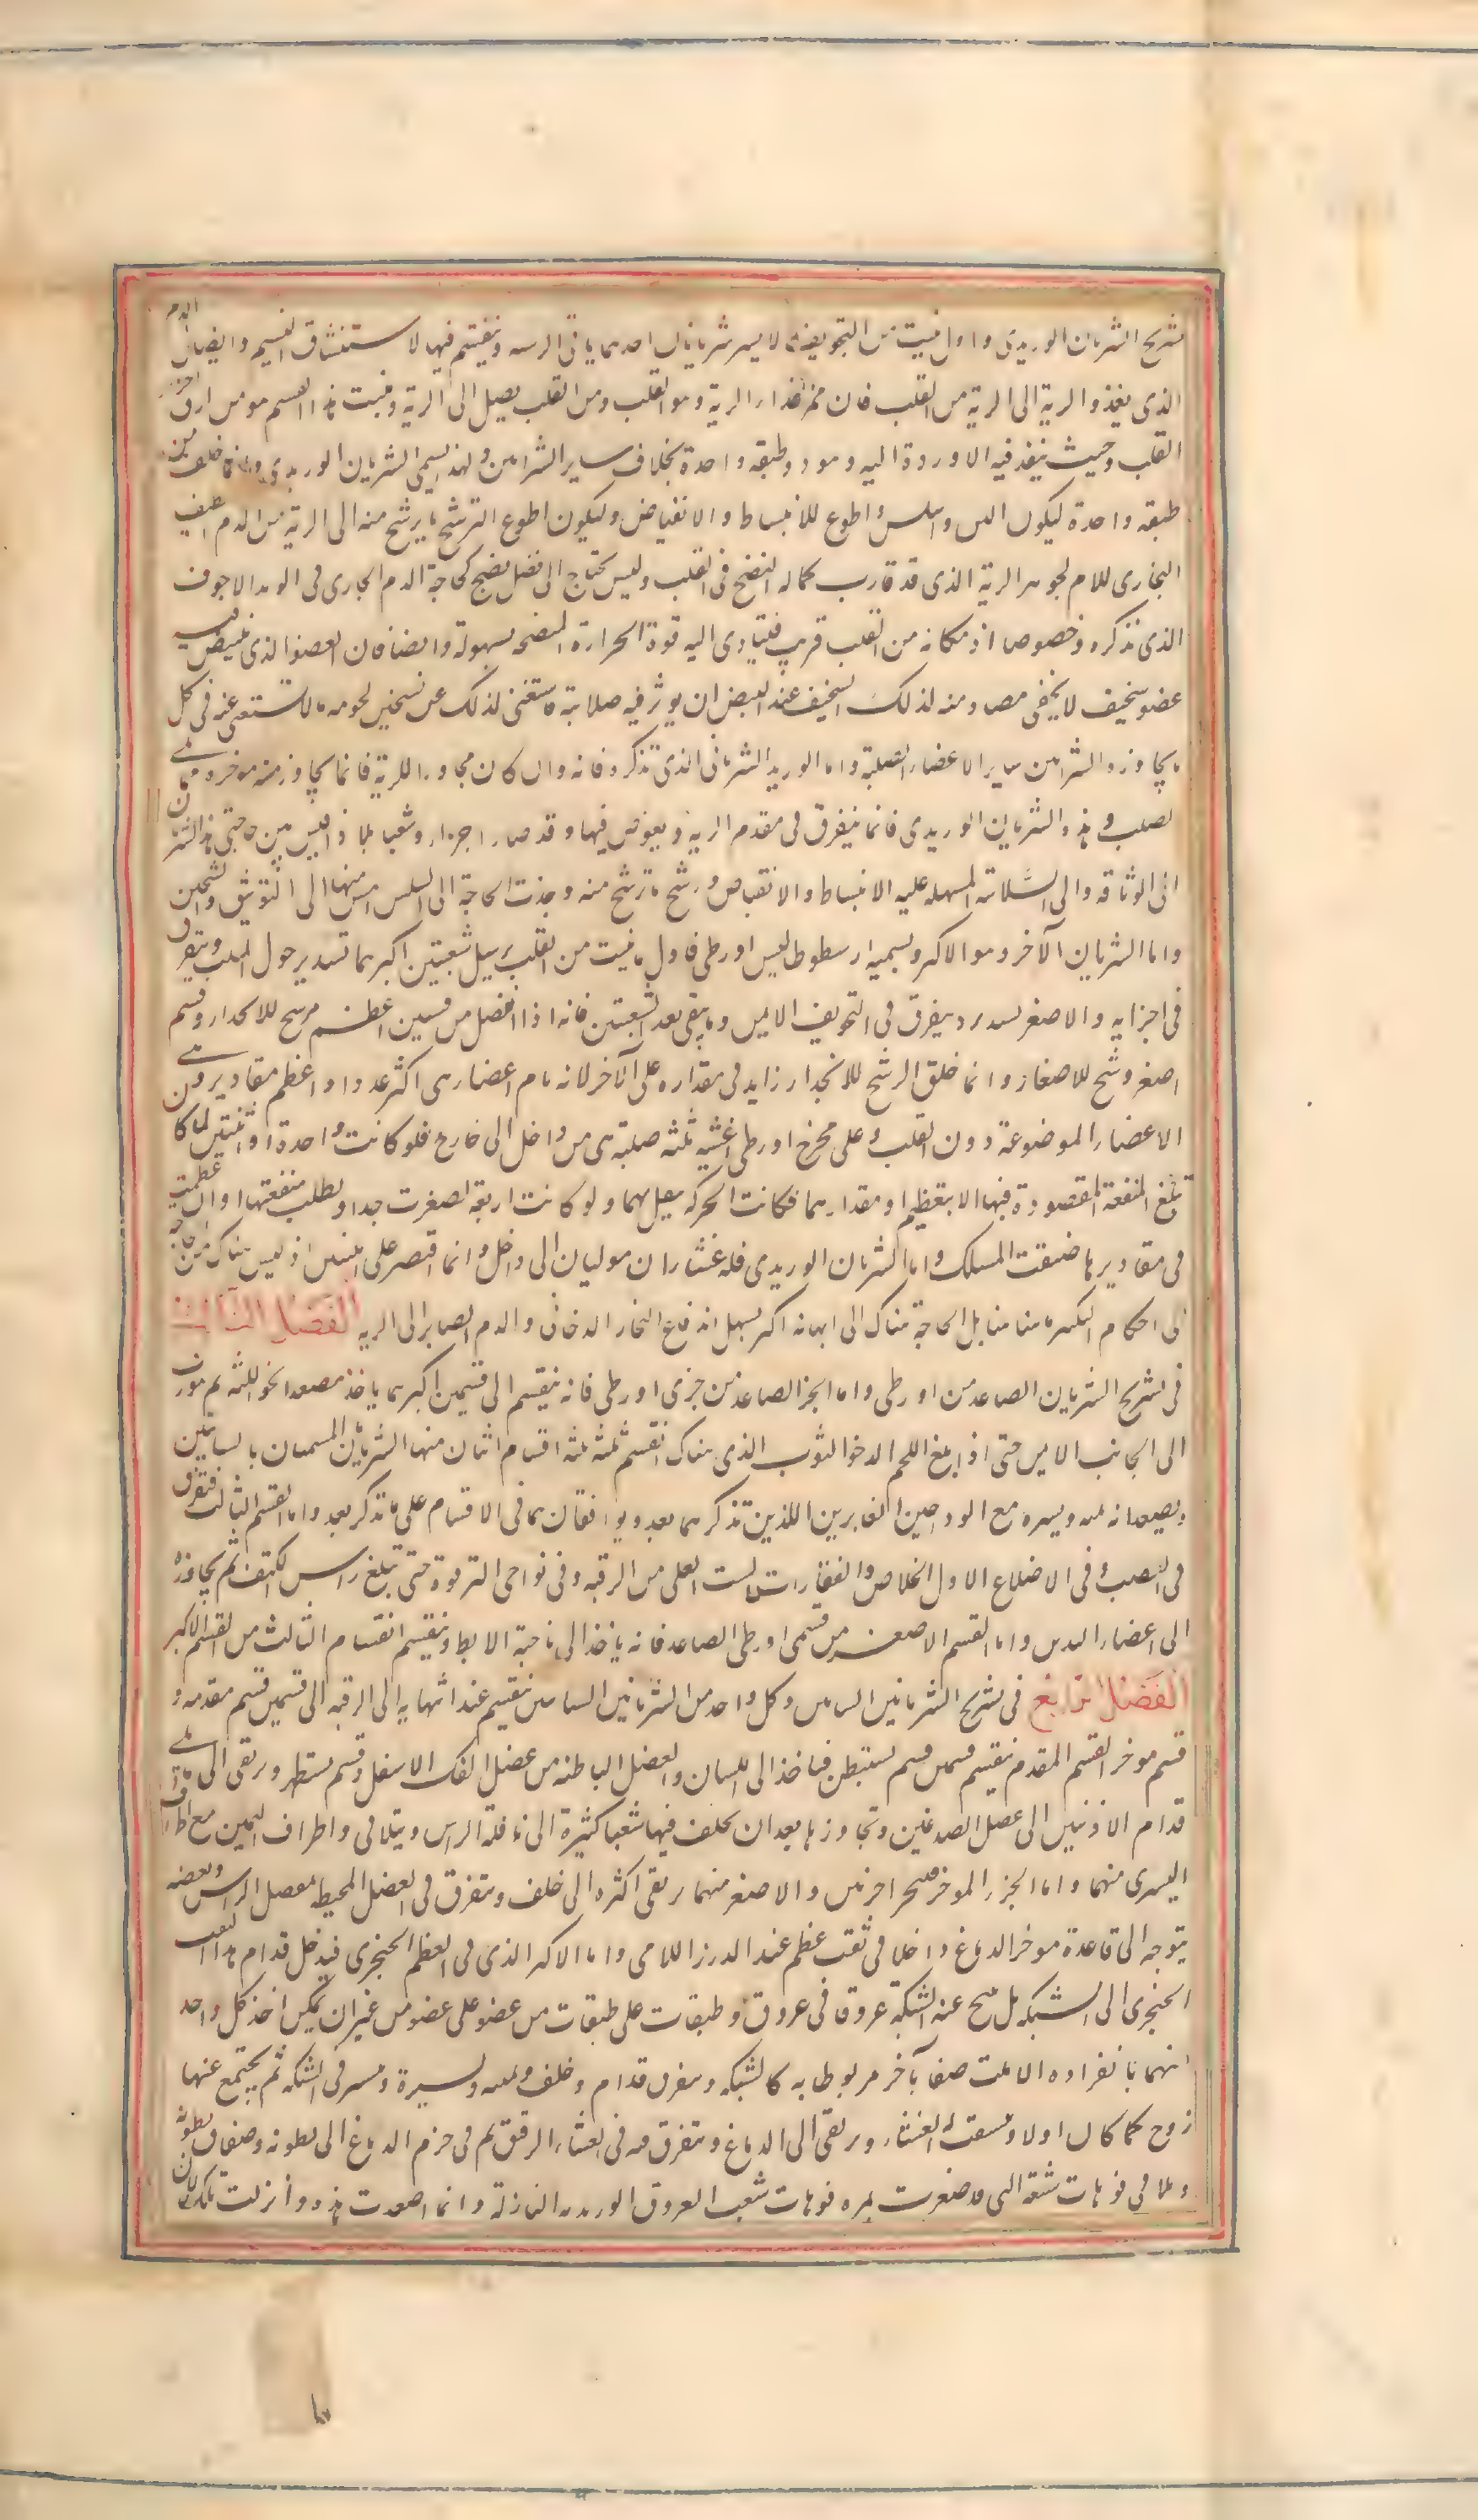 تشريح الشريان الوريدى واول ما ينبت من التجويف الايسر شريانان احدهما ياتى الريه وينقسم فيها لاستنشاق النسيم وايصال الدم
الذى يغذو الرية الى الرية من القلب فان ممر غذاء الرية هو القلب ومن القلب يصل الى الرية ومنبت هذا القسم هو من ارق اجزاء
القلب وحيث ينفذ فيه الاوردة اليه وهو ذو طبقه واحدة بخلاف ساير الشرايين ولهذا يسمى الشريان الوريدى وانما خلق من
طبقه واحدة ليكون الين واسلس واطوع للانبساط والانقباض وليكون اطوع لترشح ما يرشح منه الى الرية من الدم اللطيف
البخارى الملايم لجوهر الرية الذى قد قارب كمال النضج فى القلب وليس يحتاج الى فضل نضج كحاجة الدم الجارى فى الوريد الاجوف
الذى نذكره وخصوصا اذ مكانه من القلب قريب فيتادى اليه قوة الحرارة المنضجه بسهولة وايضا فان العضو الذى ينبض فيه
عضو سخيف لا يخشى مصادمته لذلك السخيف عند النبض ان يوثر فيه صلابته فاستغنى لذلك عن تثخين لجرمه ما لا يستغنى عنه فى كل
ما يجاوزه الشرايين ساير الاعضاء الصلبة واما الوريد الشريانى الذى نذكره فانه وان كان مجاورا للرية فانما يجاوز منه موخره مما يلى
الصلب وهذا الشريان الوريدى فانما يتفرق فى مقدم الرية ويغوص فيها وقد صار اجزاء وشعبا بل اذا قيس بين حاجتى هذا الشريان
الى الوثاقه والى السلاسة المسهله عليه الانبساط والانقباض ورشح ما يرشح منه وجدت الحاجة الى السلس امس منها الى التوثيق والتثخين
واما الشريان الآخر وهو الاكبر ويسميه ارسطوطاليس اورطى فاول ما ينبت من القلب يرسل شعبتين اكبرهما تستدير حول القلب ويتفرق
فى اجزايه والاصغر يستدير ويتفرق فى التجويف الايمن وما يبقى بعد الشعبتين فانه اذا انفصل انقسم قسمين اعظم مرشح للانحدار وقسم
اصغر مرشح للاصعاد وانما خلق المرشح للانحدار زايدا فى مقداره على الآخر لانه يام اعضاء هى اكثر عددا واعظم مقادير وهى
الاعضاء الموضوعة دون القلب وعلى مخرج اورطى اغشيه ثلثه صلبة هى من داخل الى خارج فلو كانت واحدة او اثنتين لما كان
تبلغ المنفعة المقصودة فيها الا بتعظيم مقدارهما فكانت الحركه يثقل بهما ولو كانت اربعة لصغرت جدا وبطلت منفعتها وان عظمت
فى مقاديرها ضيقت المسلك واما الشريان الوريدى فله غشاءان موليان الى داخل وانما اقتصر على اثنين اذ ليس هناك من الحاجة
الى احكام السكر ما هنا بل الحاجة هناك الى السلاسة اكثر ليسهل اندفاع البخار الدخانى والدم الصاير الى الريه الفصل الثالث
فى تشريح الشريان الصاعد من اورطى واما الجزء الصاعد من جزءى اورطى فانه ينقسم الى قسمين اكبرهما ياخذ مصعدا نحو اللبة ثم يتورب
الى الجانب الايمن حتى اذا بلغ اللحم الرخو التوثى الذى هناك انقسم ثلثه اقسام اثنان منها الشريانان المسميان بالسباتين
ويصعدانه يمنه ويسره مع الوداجين الغايرين اللذين نذكرهما بعد ويرافقان هما فى الاقسام على ما نذكر بعد واما القسم الثالث فيتفرق
فى القص وفى الاضلاع الاول الخلص والفقارات الست العلى من الرقبه وفى نواحى الترقوة حتى تبلغ راس الكتف ثم يجاوزه
الى اعضاء اليدين واما القسم الاصغر من قسمى اورطى الصاعد فانه ياخذ الى ناحية الابط وينقسم انقسام الثالث من القسم الاكبر
الفصل الرابع فى تشريح الشريانين السباتين وكل واحد من الشريانين السباتين ينقسم عند انتهايه الى الرقبه الى قسمين قسم مقدم و
قسم موخر القسم المقدم ينقسم قسمين قسم يستبطن فياخذ الى اللسان والعضل الباطنه من عضل الفك الاسفل وقسم يستظهر ويرتقى الى ما يلى
قدام الاذنين الى عضل الصدغين وتجاوزها بعد ان يخلف فيها شعبا كثيرة الى قلة الراس ويتلاقى واطراف اليمين مع اطراف
اليسرى منهما واما الجزء الموخر فيتجزا جزئين والاصغر منهما يرتقى اكثره الى خلف ويتفرق فى العضل المحيط بمفصل الراس وبعضه
يتوجه الى قاعدة موخر الدماغ داخلا فى ثقب عظيم عند الدرز اللامى واما الاكبر الذى فى العظم الحجرى فيدخل قدام هذا الثقب
الحجرى الى الشبكه بل ينتسج عنه الشبكة عروقا فى عروق وطبقات على طبقات من غضون على غضون من غير ان يمكن اخذ كل واحد
منهما بانفراده الا ملتصقا بآخر مربوطا به كالشبكه ويتفرق قدام وخلف ويمنه ويسرة وينتشر فى الشبكه ثم يجتمع عنها
زوج كما كان اولا وينثقب له الغشاء ويرتقى الى الدماغ ويتفرق منه فى الغشاء الرقيق ثم فى جرم الدماغ الى بطونه وصفاق بطونه
ويلاقى فوهات شعبه التى قد صغرت بها فوهات شعب العروق الوريديه النازلة وانما اصعدت هذه وانزلت تلك لان